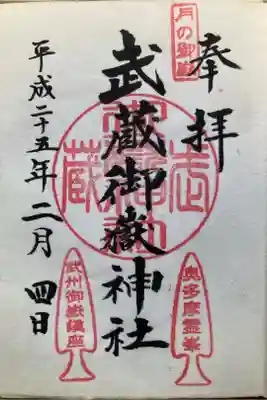 奉拝
月の御嶽
武蔵御嶽神社
平成二十五年二月四日
奥多摩霊峯
武州御嶽講座